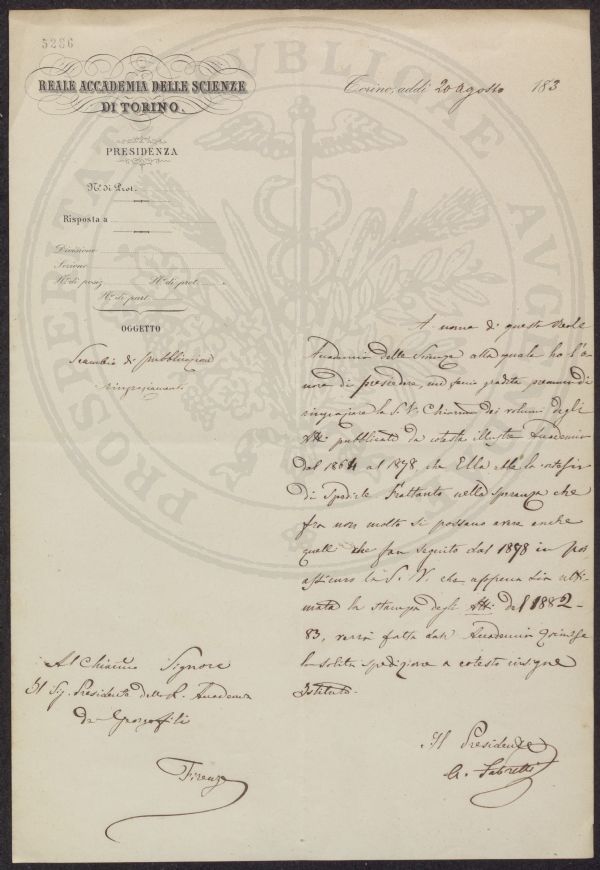 5286
REALE ACCADEMIA DELLE SCIENZE
DI TORINO.
PRESIDENZA
N.º di Prot.
Risposta a
Divisione
Sezione
N.º di posiz. N.º di prot.
N.º di part.
OGGETTO
Scambio di pubblicazioni
ringraziamenti
Torino, addì 20 Agosto 183
A nome di questa Reale
Accademia delle Scienze alla quale ho l'o
nore di presiedere, mi fo gradita premura di
ringraziare la S. V. Chiarma dei volumi degli
Atti pubblicati da cotesta illustre Accademia
dal 1864 al 1878, che Ella ebbe la cortesia
di spedirle. Frattanto nella speranza che
fra non molto si possano avere anche
quelli che fan seguito dal 1878 in poi
assicuro la S. V. che appena sia ulti
mata la stampa degli Atti del 1882-
83, verrà fatta dall' Accademia Torinese
la solita spedizione a cotesto insigne
Istituto.
Al Chiarmo Signore
Il Sig. Presidente della R. Accademia
dei Georgofili
Firenze
Il Presidente
A. Fabretti
PROSPERITATI PUBLICAE AUGENDAE